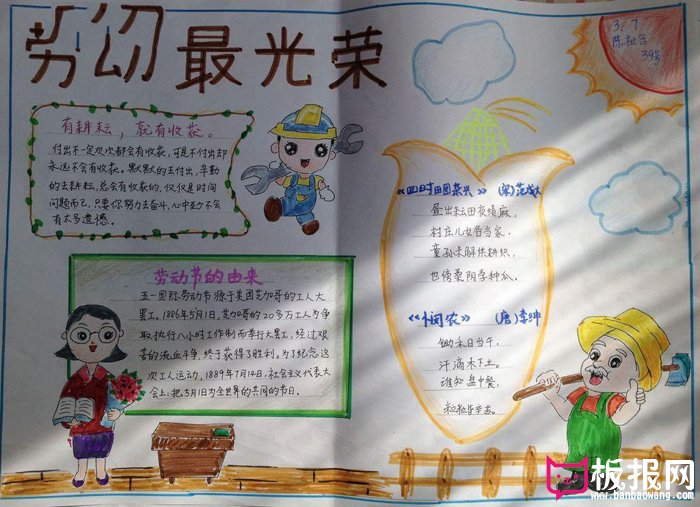 劳动最光荣
3.7
39号
有耕耘，就有收获。
付出不一定次次都会有收获，可是不付出却
永远不会有收获。默默的去付出，辛勤
的去耕耘，总会有收获的，仅仅是时间
问题而已，只要你努力去奋斗，心中的不会
有太多遗憾。
劳动节的由来
五一国际劳动节源于美国芝加哥的工人大
罢工。1886年5月1日，芝加哥的20多万工人为争
取执行八小时工作制而举行大罢工，经过艰
苦的流血斗争，终于获得了胜利。为了纪念这
次工人运动，1889年7月14日，社会主义代表大
会上：把5月1日为全世界的共同的节日。
《四时田园杂兴》 (宋)范成大
昼出耘田夜绩麻，
村庄儿女各当家。
童孙未解供耕织，
也傍桑阴学种瓜。
《悯农》 (唐)李绅
锄禾日当午，
汗滴禾下土。
谁知盘中餐，
粒粒皆辛苦。
板报网
www.banbaowang.com